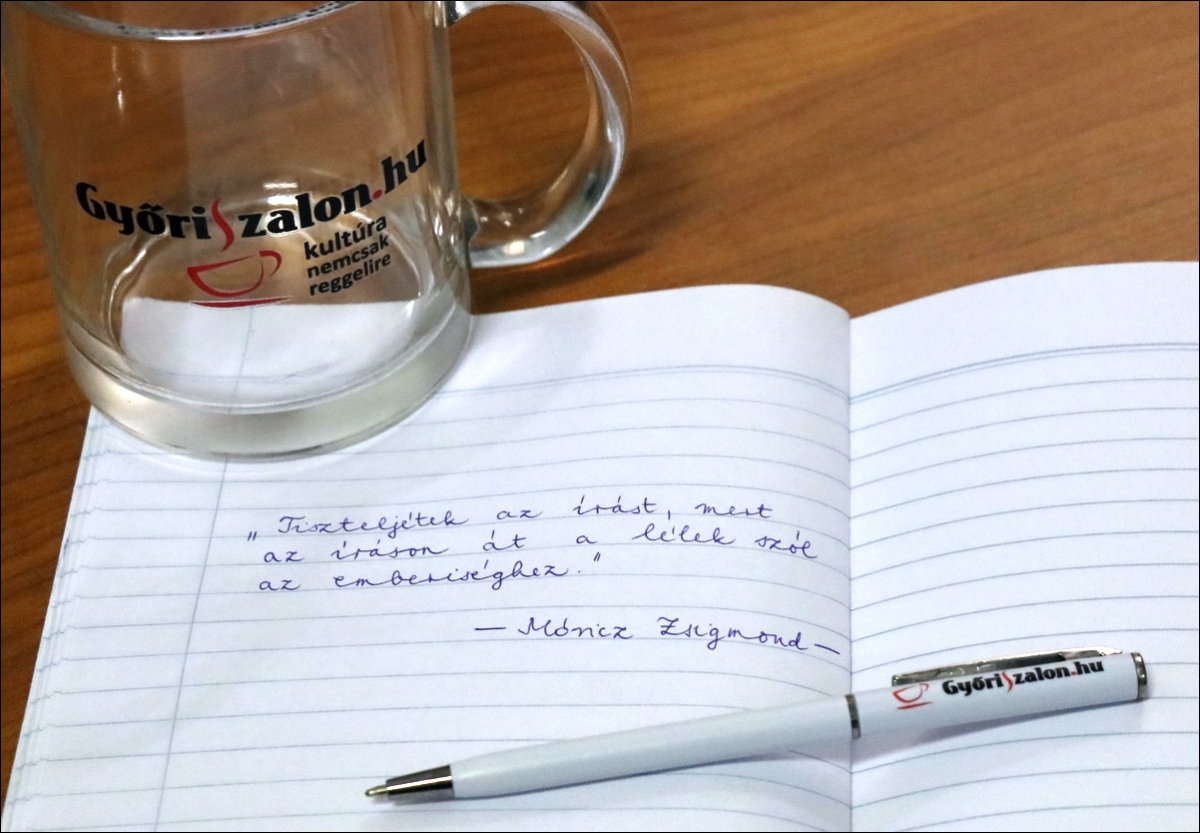 GyőriSzalon.hu
kultúra
nemcsak
reggelire
„Tiszteljétek az írást, mert
az íráson át a lélek szól
az emberiséghez."
— Móricz Zsigmond —
GyőriSzalon.hu